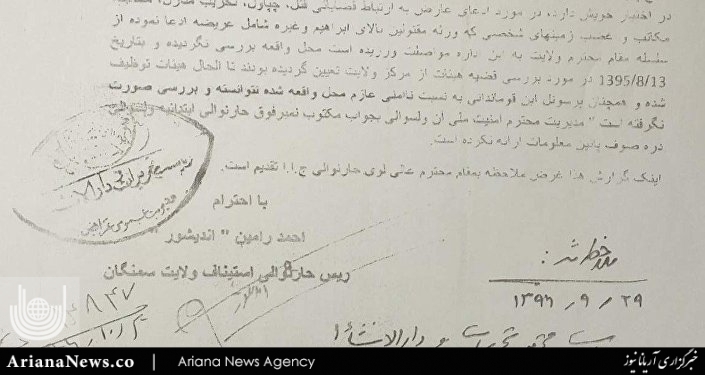 در اختیار خویش دارد، در مورد ادعای عارض به ارتباط قضایای قتل، چپاول، تخریب منازل،
مکاتب و غصب زمینهای شخصی که ورثه مقتولین بالای ابراهیم وغیره شامل عریضه ادعا نموده از
سلسله مقام محترم ولایت به این اداره مواصلت ورزیده است محل واقعه بررسی نگردیده و بتاریخ
1395/8/13 در مورد بررسی قضیه هیئات از مرکز ولایت تعیین گردیده بودند تا الحال هیئات توظیف
شده و همچنان پرسونل این قوماندانی به نسبت ناامنی عازم محل واقعه شده نتوانسته و بررسی صورت
نگرفته است " مدیریت محترم امنیت ملی آن ولسوالی بجواب مکتوب نمبرفوق حارنوالی ابتدائیه ولسوالی
دره صوف پائین معلومات ارائه نکرده است.
اینک گزارش هذا غرض ملاحظه بمقام محترم عالی لوی حارنوالی ج.ا.ا تقدیم است.
با احترام
احمد رامین " اندیشور "
رییس حارنوالی استیناف ولایت سمنگان
ملاحظه شد:
۱۳۹۶/۹/۲۹
۸۴۷
و دارالانشاء
ArianaNews.co | Ariana News Agency
خبرگزاری آریانا نیوز